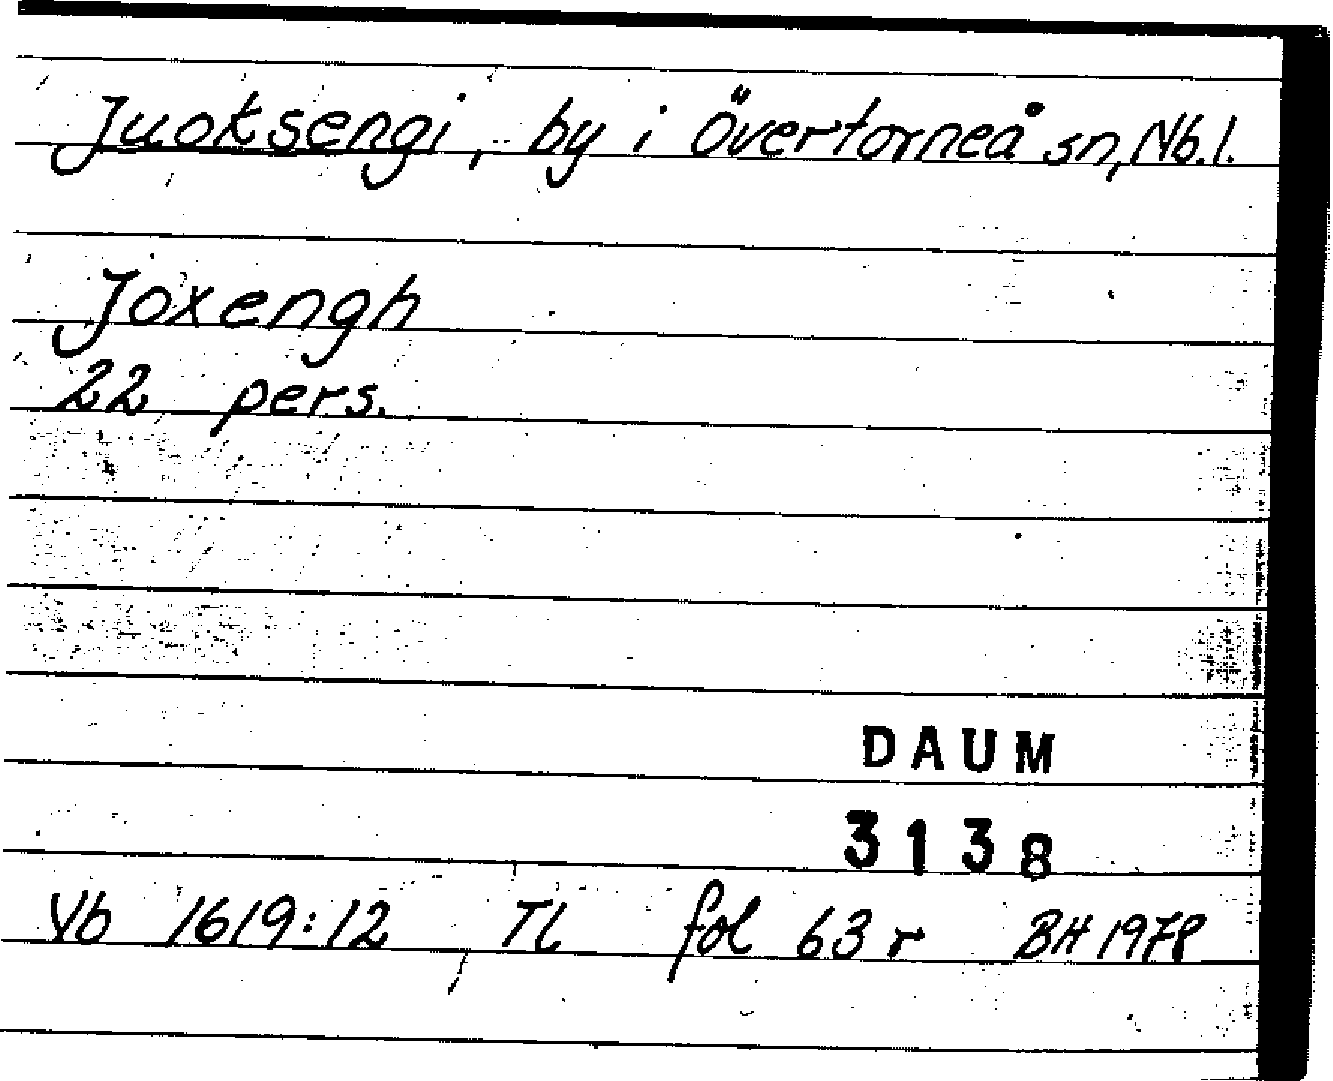 Juoksengi, by i Övertorneå sn, Nb.l.
Joxengh
22 pers.
DAUM
3138
Vb 1619:12 TL fol 63 r BH 1978